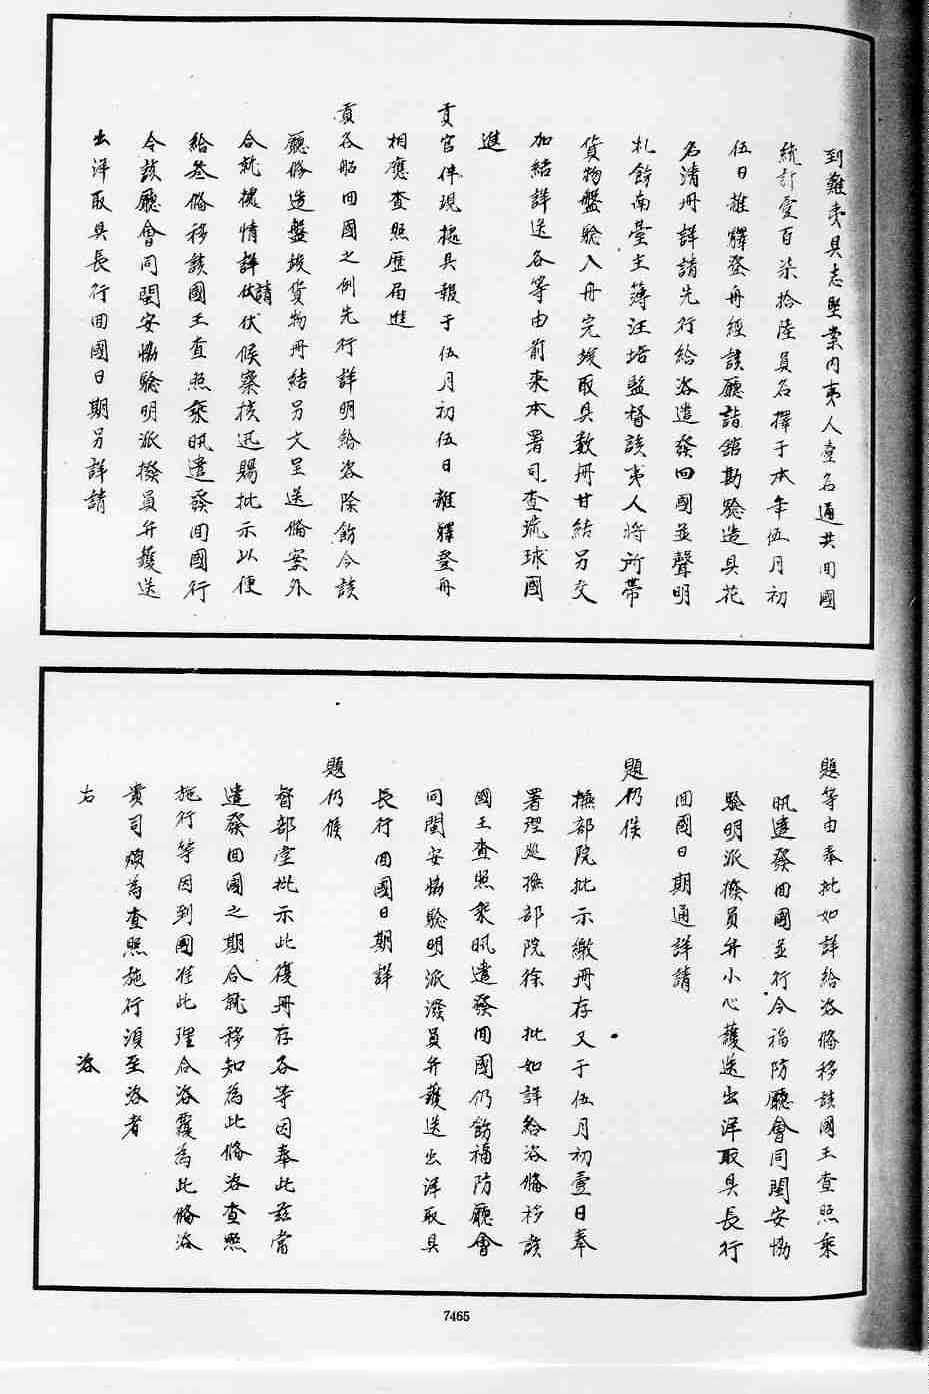 到難夷具志堅業內夷人壹名通共回國
統計壹百柒拾陸員名擇于本年伍月初
伍日離驛登舟經該廳詣舘勘騐造具花
名清冊詳請先行給咨遣發回國並聲明
札飭南臺主簿汪培監督該夷人將所帶
貨物盤騐入舟完竣取具數冊甘結另文
加結詳送各等由前來本署司查琉球國
進
貢官伴現據具報于伍月初伍日離驛登舟
相應查照歷屆進
貢各船回國之例先行詳明給咨除飭令該
廳俻造盤竣貨物冊結另文呈送俻案外
合就據情詳請伏候察核迅賜批示以便
給叁俻移該國王查照乘汛遣發回國行
令該廳會同閩安協騐明派撥員弁護送
出洋取具長行回國日期另詳請
題等由奉批如詳給咨俻移該國王查照乘
汛遣發回國並行令福防廳會同閩安協
騐明派撥員弁小心護送出洋取具長行
回國日期通詳請
題仍候
撫部院批示繳冊存又于伍月初壹日奉
署理巡撫部院徐　批如詳給咨俻移該
國王查照乘汛遣發回國仍飭福防廳會
同閩安協騐明派撥員弁護送出洋取具
長行回國日期詳
題仍候
督部堂批示此復冊存各等因奉此茲當
遣發回國之期合就移知為此俻咨查照
施行等因到國准此理合咨覆為此俻咨
貴司煩為查照施行須至咨者
右　　咨
7465